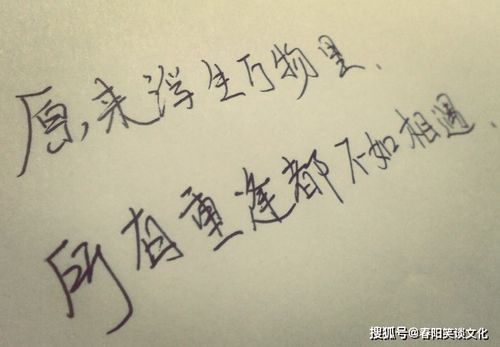 原来浮生万物里、
所有重逢都不如相遇、
搜狐号@春阳笑谈文化